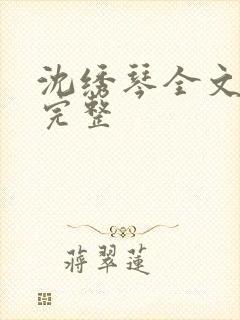 沈绣琴全文
完整
蒋翠莲